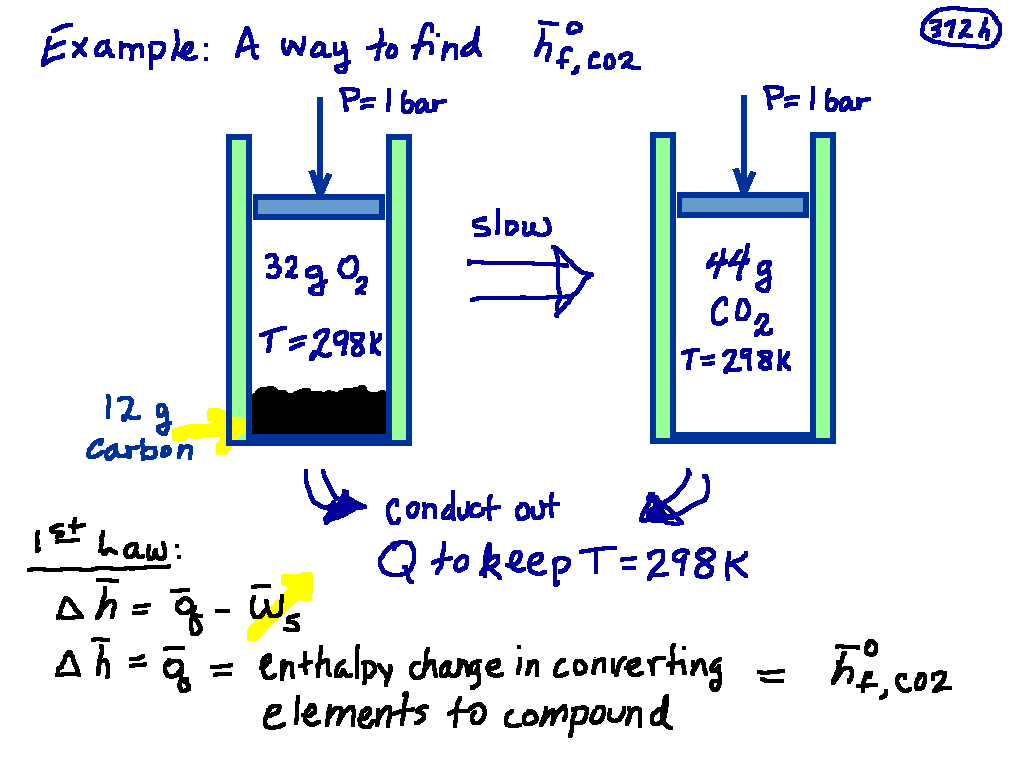 Example: A way to find h̄°f,CO2
372h
P=1bar
P=1bar
slow
32g O₂
T=298K
44g
CO₂
T=298K
12 g
Carbon
conduct out
Q to keep T=298K
1st Law:
Δh̄ = q̄ - w̄s
Δh̄ = q̄ = enthalpy change in converting = h̄°f,CO2
elements to compound